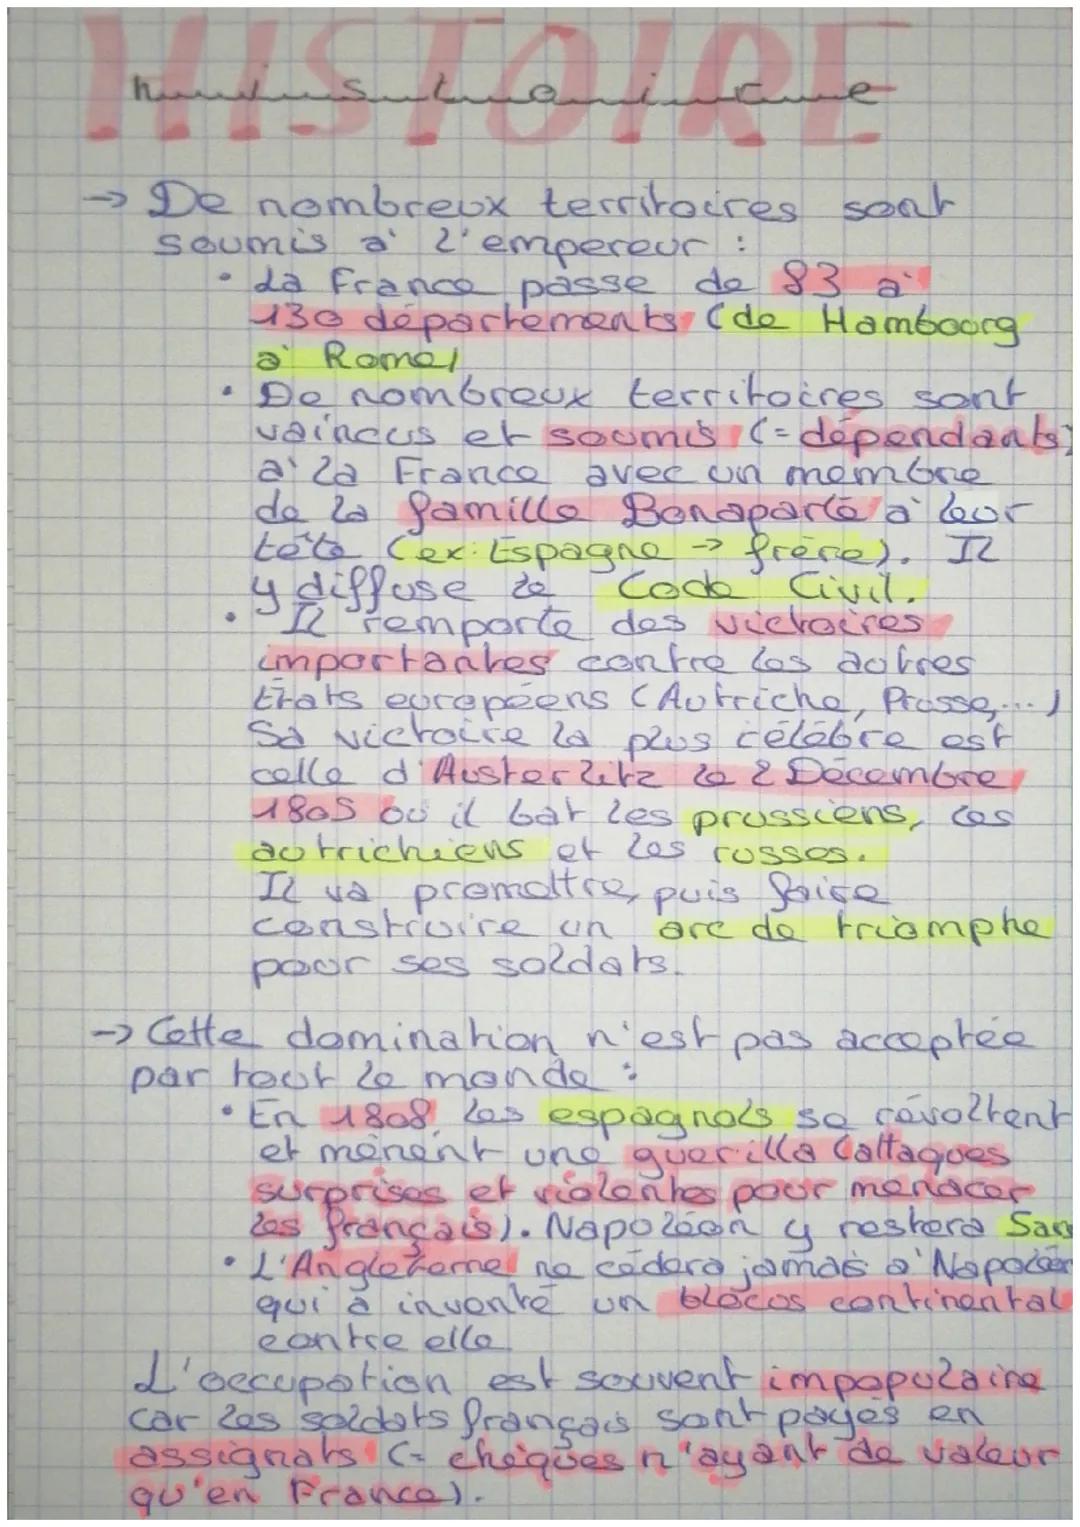 HISTOIRE
histoire
→ De nombreux territoires sont
soumis à l'empereur :
• La France passe de 83 à
130 départements (de Hambourg
à Rome)
• De nombreux territoires sont
vaincus et soumis (= dépendants)
à la France avec un membre
de la famille Bonaparte à leur
tête (ex: Espagne → frère). Il
y diffuse le Code Civil.
• Il remporte des victoires
importantes contre les autres
États européens (Autriche, Prusse,...)
Sa victoire la plus célèbre est
celle d'Austerlitz le 2 Décembre
1805 où il bat les prussiens, les
autrichiens et les russes.
Il va promettre, puis faire
construire un arc de triomphe
pour ses soldats.
→ Cette domination n'est pas acceptée
par tout le monde :
• En 1808, les espagnols se révoltent
et mènent une guerilla (attaques
surprises et violentes pour menacer
les français). Napoléon y restera
• L'Angleterre ne cèdera jamais à
qui a inventé un blocus continental
contre elle
L'occupation est souvent impopulaire
car les soldats français sont payés en
assignats (= chèques n'ayant de valeur
qu'en France).